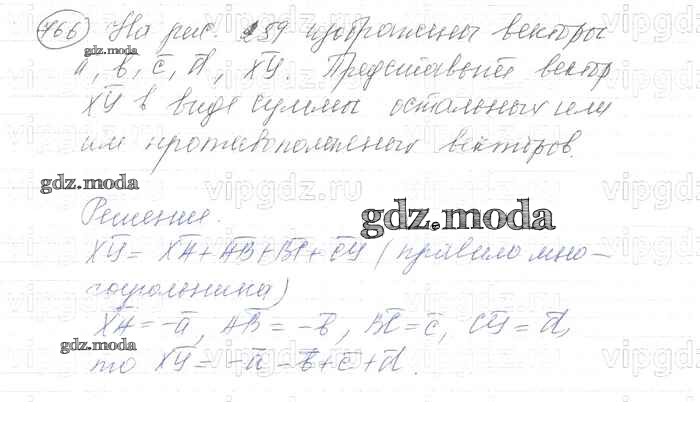 766) На рис. 259 изображены векторы
gdz.moda
a̅, b̅, c̅, d̅, X̅Y̅. Представьте вектор
X̅Y̅ в виде суммы остальных или
им противоположных векторов.
gdz.moda
vipgdz.ru
Решение.
gdz.moda
X̅Y̅ = X̅A̅ + A̅B̅ + B̅C̅ + C̅Y̅ (правило мно-
гоугольника)
X̅A̅ = -a̅, A̅B̅ = -b̅, B̅C̅ = c̅, C̅Y̅ = d̅,
gdz.moda
то X̅Y̅ = -a̅ - b̅ + c̅ + d̅.